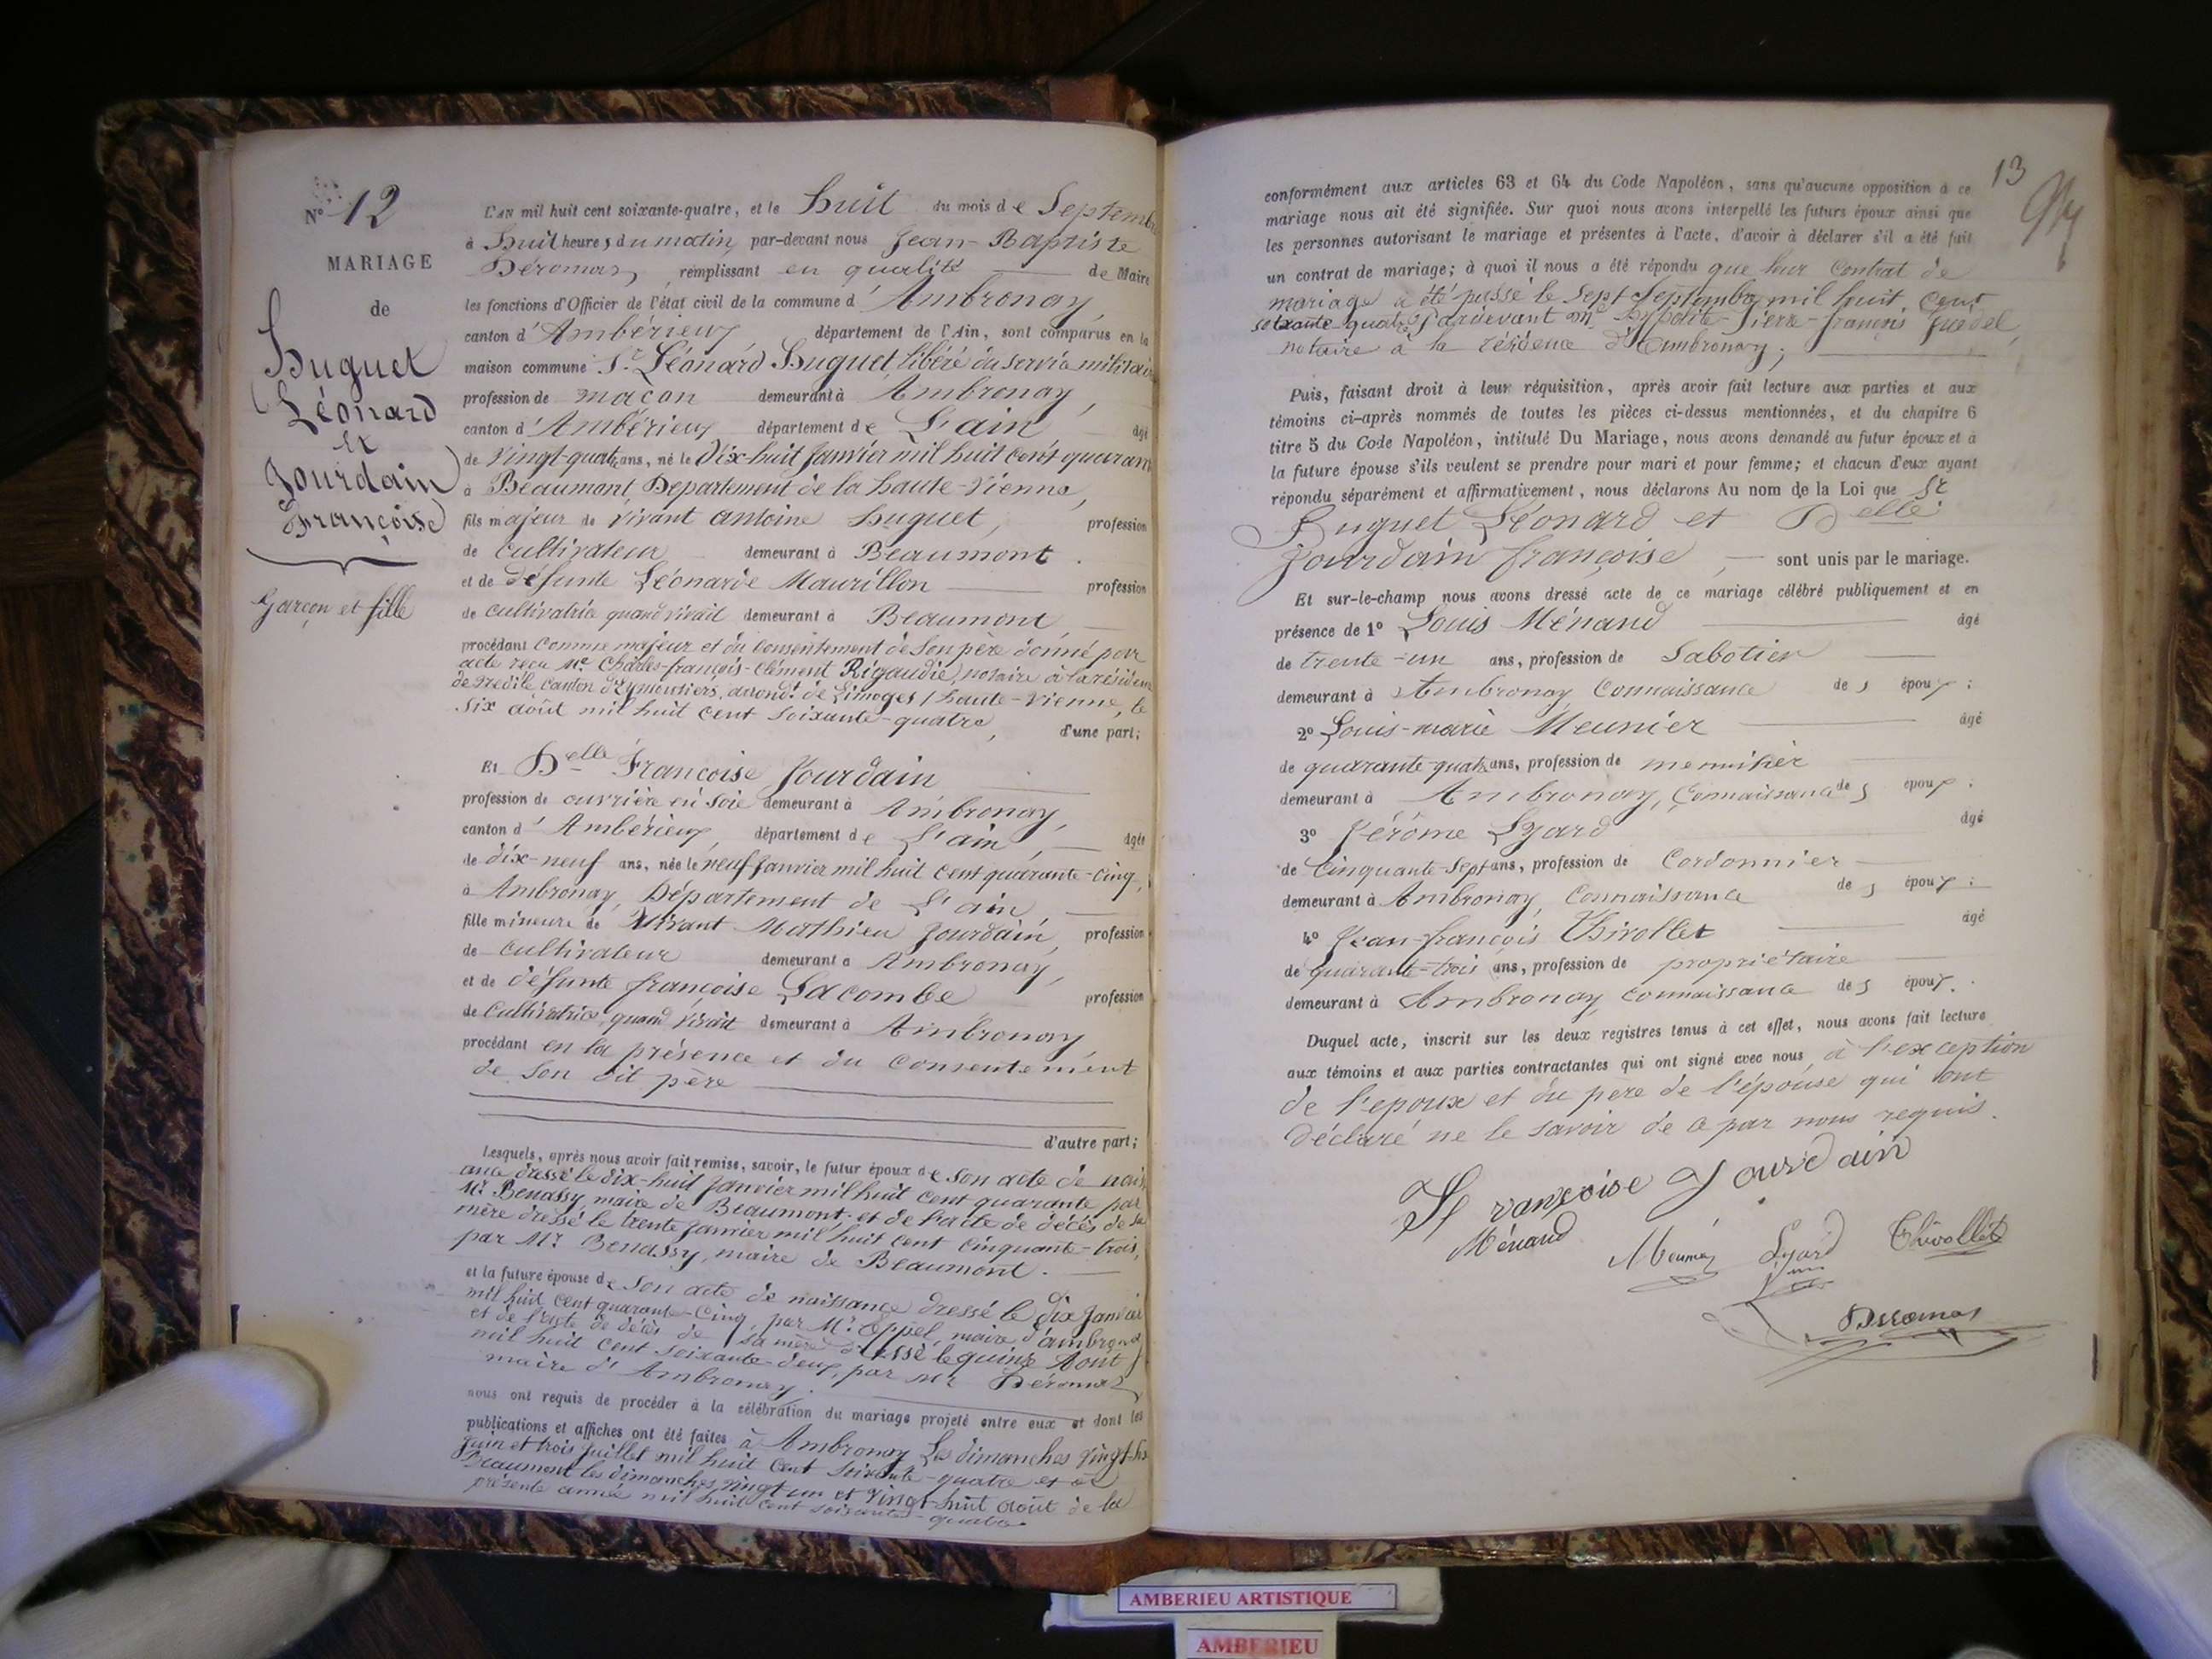 N° 12
MARIAGE
de
Huguet
Léonard
et
Jourdain
Françoise
Garçon et fille
L'AN mil huit cent soixante-quatre, et le huit du mois de Septembre
à huit heures du matin, par-devant nous Jean-Baptiste
Déromas, remplissant en qualité de Maire
les fonctions d'Officier de l'état civil de la commune d'Ambronay,
canton d'Ambérieux département de l'Ain, sont comparus en la
maison commune Sr Léonard Huguet, libéré du service militaire
profession de maçon demeurant à Ambronay,
canton d'Ambérieux département de L'ain âgé
de vingt-quatre ans, né le Dix-huit Janvier mil huit cent quarante
à Beaumont, Departement de la haute-Vienne,
fils majeur de vivant antoine Huguet, profession
de cultivateur demeurant à Beaumont.
et de défunte Léonarde Maurillon profession
de cultivatrice quand vivait demeurant à Beaumont,
procédant comme majeur et du consentement de son père donné par
acte reçu Me Charles-françois-Clément Rigaudie, notaire à la résidence
de canton d'Eymoutiers, arrondt de Limoges, haute-Vienne, le
six août mil huit cent soixante-quatre, d'une part;
Et Delle Françoise Jourdain
profession de ouvrière en soie demeurant à Ambronay,
canton d'Ambérieux, département de L'ain, âgée
de dix-neuf ans, née le neuf Janvier mil huit cent quarante-cinq,
à Ambronay, Département de L'ain,
fille mineure de Vivant Mathieu Jourdain, profession
de cultivateur demeurant à Ambronay,
et de défunte françoise Lacombe profession
de Cultivatrice quand vivait demeurant à Ambronay,
procédant en la présence et du consentement
de son dit père
d'autre part;
Lesquels, après nous avoir fait remise, savoir, le futur époux de son acte de nais
ance dressé le dix-huit Janvier mil huit cent quarante par
Mr Benassy, maire de Beaumont, et de l'acte de décès de sa
mère dressé le trente Janvier mil huit cent cinquante-trois,
par Mr Benassy, maire de Beaumont.
et la future épouse de son acte de naissance dressé le dix Janvier
mil huit cent quarante-cinq, par Mr Oppel, maire d'ambronay
et de l'acte de décès de sa mère dressé le quinze Aout
mil huit cent soixante-deux, par Mr Déromas
maire d'Ambronay.
nous ont requis de procéder à la célébration du mariage projeté entre eux et dont les
publications et affiches ont été faites à Ambronay Les dimanches vingt-six
Juin et trois Juillet mil huit cent soixante-quatre et à
Beaumont les dimanches vingt un et vingt-huit août de la
présente année mil huit cent soixante-quatre
13
conformément aux articles 63 et 64 du Code Napoléon, sans qu'aucune opposition à ce
mariage nous ait été signifiée. Sur quoi nous avons interpellé les futurs époux ainsi que
les personnes autorisant le mariage et présentes à l'acte, d'avoir à déclarer s'il a été fait
un contrat de mariage; à quoi il nous a été répondu que leur Contrat de
mariage a été passé le Sept Septembre mil huit cent
soixante quatre pardevant me hypolite-Pierre-françois
notaire à la résidence d'Ambronay;
Puis, faisant droit à leur réquisition, après avoir fait lecture aux parties et aux
témoins ci-après nommés de toutes les pièces ci-dessus mentionnées, et du chapitre 6
titre 5 du Code Napoléon, intitulé Du Mariage, nous avons demandé au futur époux et à
la future épouse s'ils veulent se prendre pour mari et pour femme; et chacun d'eux ayant
répondu séparément et affirmativement, nous déclarons Au nom de la Loi que Sr
Huguet Léonard et Delle
Jourdain françoise, sont unis par le mariage.
Et sur-le-champ nous avons dressé acte de ce mariage célébré publiquement et en
présence de 1° Louis Ménand âgé
de trente-un ans, profession de Sabotier
demeurant à Ambronay, Connaissance des époux;
2° Louis-marie Meunier âgé
de quarante-quatre ans, profession de menuisier
demeurant à Ambronay, Connaissance des époux;
3° Jérôme Lyard âgé
de Cinquante-Sept ans, profession de Cordonnier
demeurant à Ambronay, Connaissance des époux;
4° Jean-françois Thivollet âgé
de quarante-trois ans, profession de propriétaire
demeurant à Ambronay, Connaissance des époux.
Duquel acte, inscrit sur les deux registres tenus à cet effet, nous avons fait lecture
aux témoins et aux parties contractantes qui ont signé avec nous, à l'exception
de l'epoux et du père de l'épouse qui ont
déclaré ne le savoir de ce par nous requis.
Françoise Jourdain
Ménand Meunier Lyard Thivollet
Deromas
AMBERIEU ARTISTIQUE
AMBERIEU